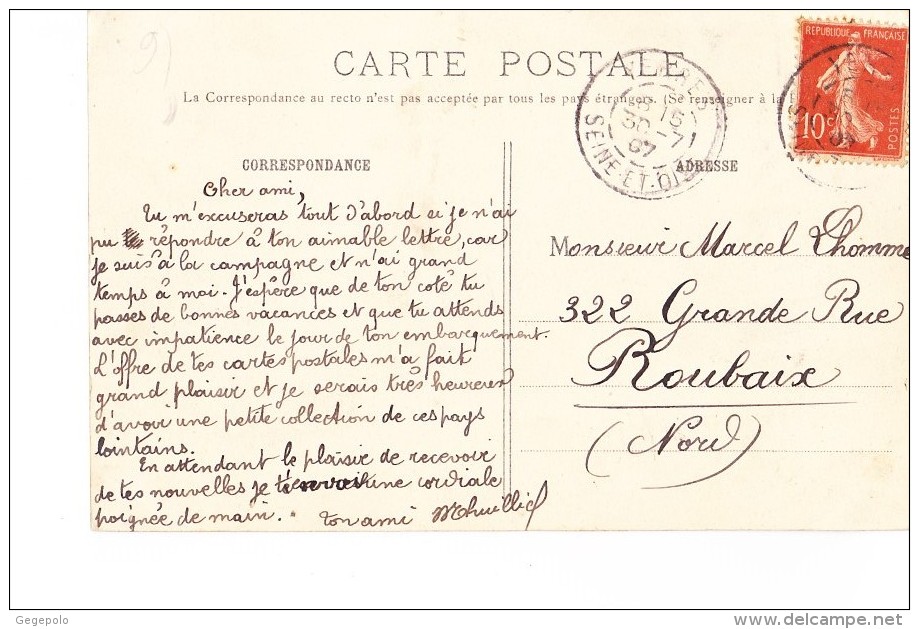 9)
CARTE POSTALE
La Correspondance au recto n'est pas acceptée par tous les pays étrangers. (Se renseigner à la P
REPUBLIQUE FRANÇAISE
10c
POSTES
SEINE-ET-OI
CORRESPONDANCE
ADRESSE
Cher ami,
Tu m'excuseras tout d'abord si je n'ai
pu répondre à ton aimable lettre, car
je suis à la campagne et n'ai grand
temps à moi. J'espère que de ton coté tu
passes de bonnes vacances et que tu attends
avec impatience le jour de ton embarquement.
L'offre de tes cartes postales m'a fait
grand plaisir et je serais très heureux
d'avoir une petite collection de ces pays
lointains.
En attendant le plaisir de recevoir
de tes nouvelles je une cordiale
poignée de main. ton ami
Monsieur Marcel Lhomme
322 Grande Rue
Roubaix
(Nord)
Gegepolo
delcampe.net